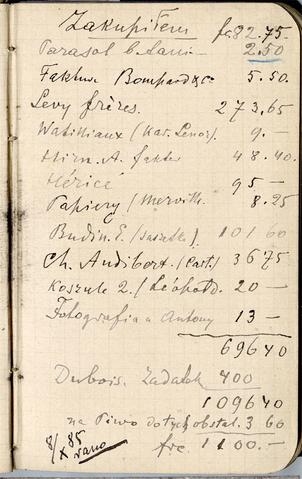 Zakupiłem frc 82.75.
Parasol b. tani — 2.50
Faktura Bompard & Co 5.50.
Levy frères. 273,65
Watilliaux (Kar. Lenor.) 9.—
Hirn. A. faktur 48.40.
Héricé 95 —
Papiery / Merville 8.25
Budin. E. (Saszetka). 101 60
Ch. Audibert. (Cart.) 36 75
Koszule 2. / Léopold. 20 —
Fotografia u Antony 13 —
696 40
Dubois. Zadatek 400
1096 40
na Piwo dotych obstal. 3 60
8/X 85 rano frc. 1100.—